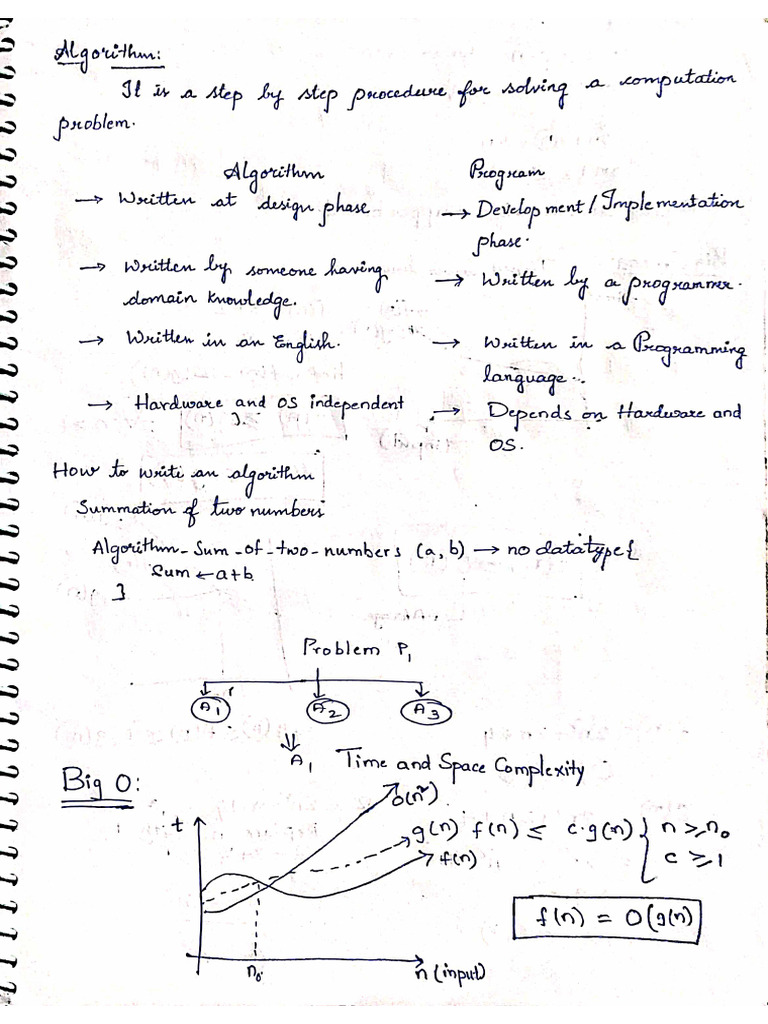 Algorithm:
It is a step by step procedure for solving a computation
problem.
Algorithm Program
→ Written at design phase → Development / Implementation
phase.
→ Written by someone having → Written by a programmer.
domain knowledge.
→ Written in an English. → Written in a Programming
language.
→ Hardware and OS independent → Depends on Hardware and
OS.
How to write an algorithm
Summation of two numbers
Algorithm-Sum-of-two-numbers (a, b) → no datatype{
Sum ← a+b
}
Problem P₁
A₁ A₂ A₃
⇓
A₁ Time and Space Complexity
Big O:
O(n²)
t g(n) f(n) ≤ c.g(n) { n ≥ n₀
f(n) c ≥ 1
f(n) = O(g(n)
n₀ n (input)